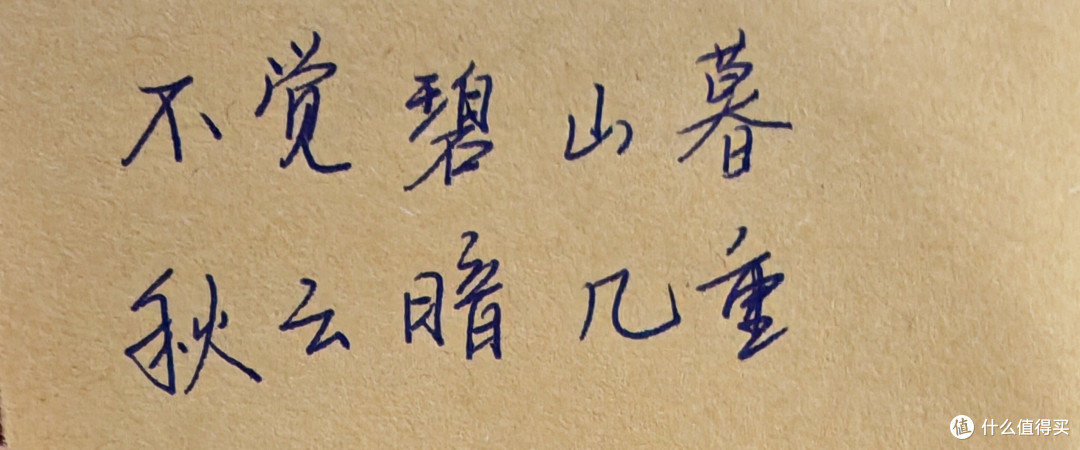 不觉碧山暮
秋云暗几重
值 什么值得买